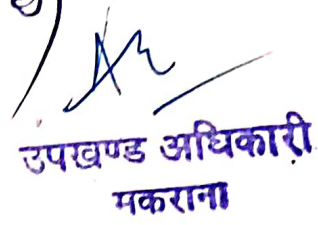 उपखण्ड अधिकारी
मकराना